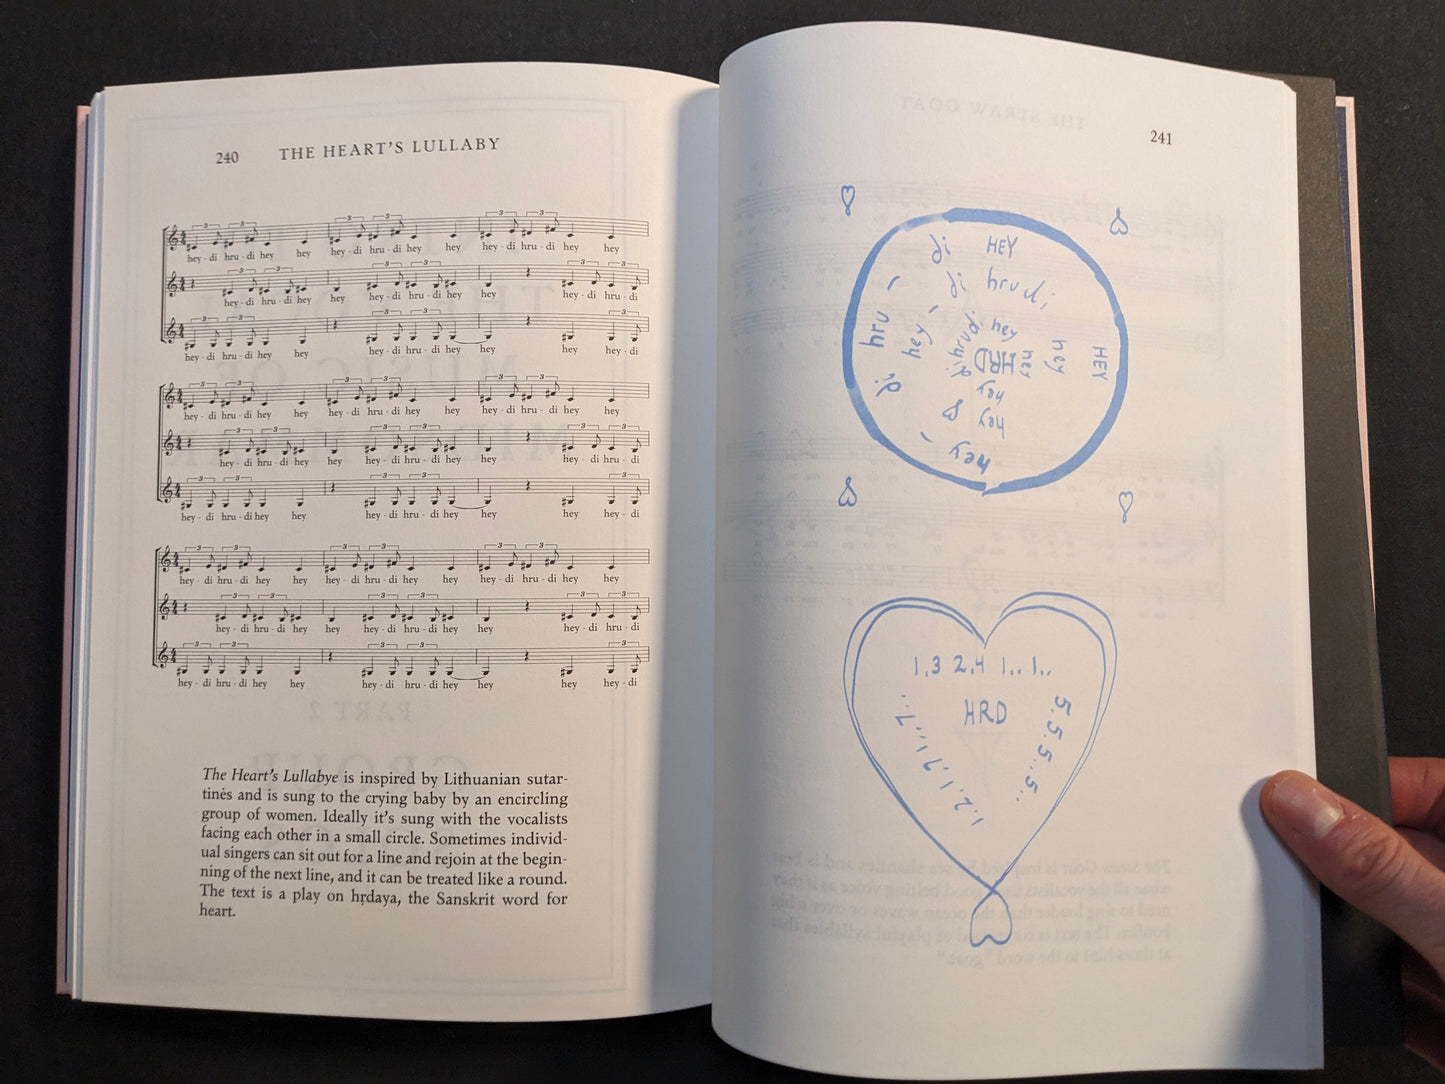 240 THE HEART'S LULLABY
3 3 3 3 3 3
hey - di hru - di hey hey hey - di hru - di hey hey hey - di hru - di hey hey
3 3 3 3 3
hey - di hru - di hey hey hey - di hru - di hey hey hey - di hru - di
3 3 3 3 3
hey - di hru - di hey hey hey - di hru - di hey hey hey hey - di
3 3 3 3 3 3
hey - di hru - di hey hey hey - di hru - di hey hey hey - di hru - di hey hey
3 3 3 3 3
hey - di hru - di hey hey hey - di hru - di hey hey hey - di hru - di
3 3 3 3 3
hey - di hru - di hey hey hey - di hru - di hey hey hey hey - di
3 3 3 3 3 3
hey - di hru - di hey hey hey - di hru - di hey hey hey - di hru - di hey hey
3 3 3 3 3
hey - di hru - di hey hey hey - di hru - di hey hey hey - di hru - di
3 3 3 3 3
hey - di hru - di hey hey hey - di hru - di hey hey hey hey - di
The Heart's Lullabye is inspired by Lithuanian sutar-
tinės and is sung to the crying baby by an encircling
group of women. Ideally it's sung with the vocalists
facing each other in a small circle. Sometimes individ-
ual singers can sit out for a line and rejoin at the begin-
ning of the next line, and it can be treated like a round.
The text is a play on hṛdaya, the Sanskrit word for
heart.
241
di HEY
di hrudi
hru - hey - hrudi hey hey HEY
di HRD hey
hey
hey
hey -
1.3 2.4 1.. 1..
HRD
5.5.5..5..
1.2.1.7 1..7..